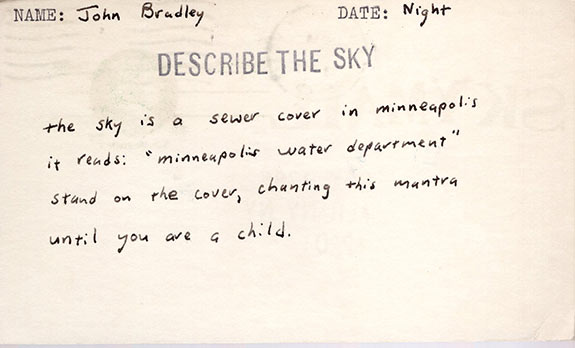 NAME: John Bradley DATE: Night
DESCRIBE THE SKY
the sky is a sewer cover in minneapolis
it reads: "minneapolis water department"
stand on the cover, chanting this mantra
until you are a child.